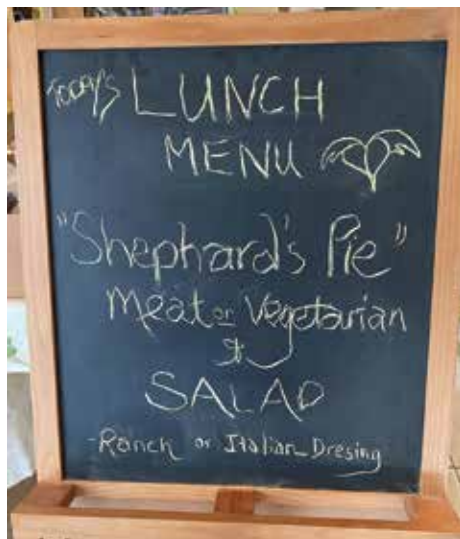 TODAY'S LUNCH
MENU
"Shephard's Pie"
Meat or Vegetarian
&
SALAD
-Ranch or Italian Dresing